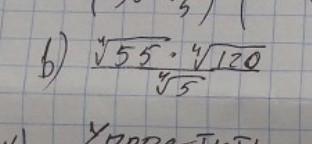 b) \frac{\sqrt[4]{55} \cdot \sqrt[4]{120}}{\sqrt[4]{5}}